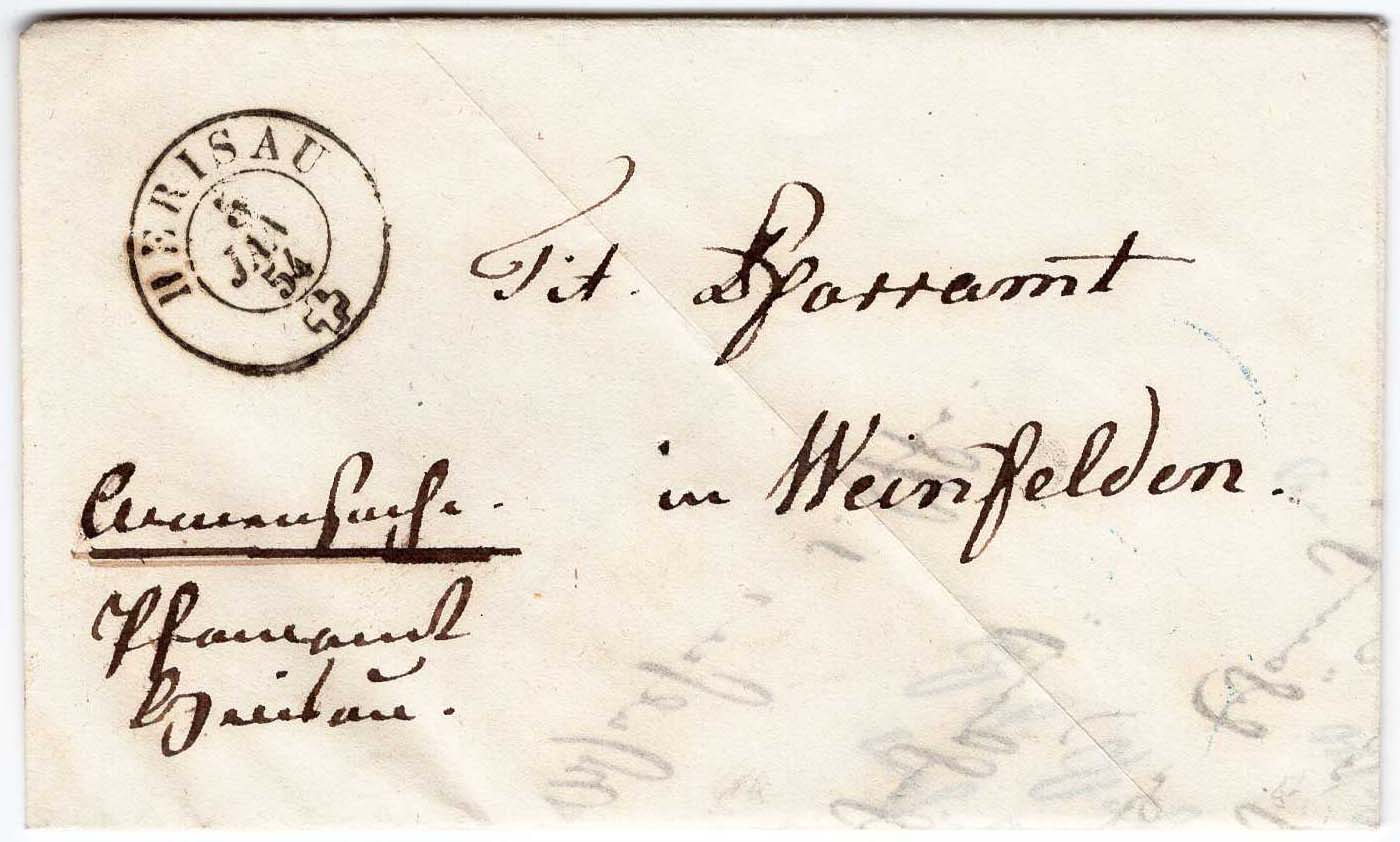 HERISAU
JAN
54
Tit. Pfarramt
in Weinfelden.
Armensache.
Pfarramt
Herisau.